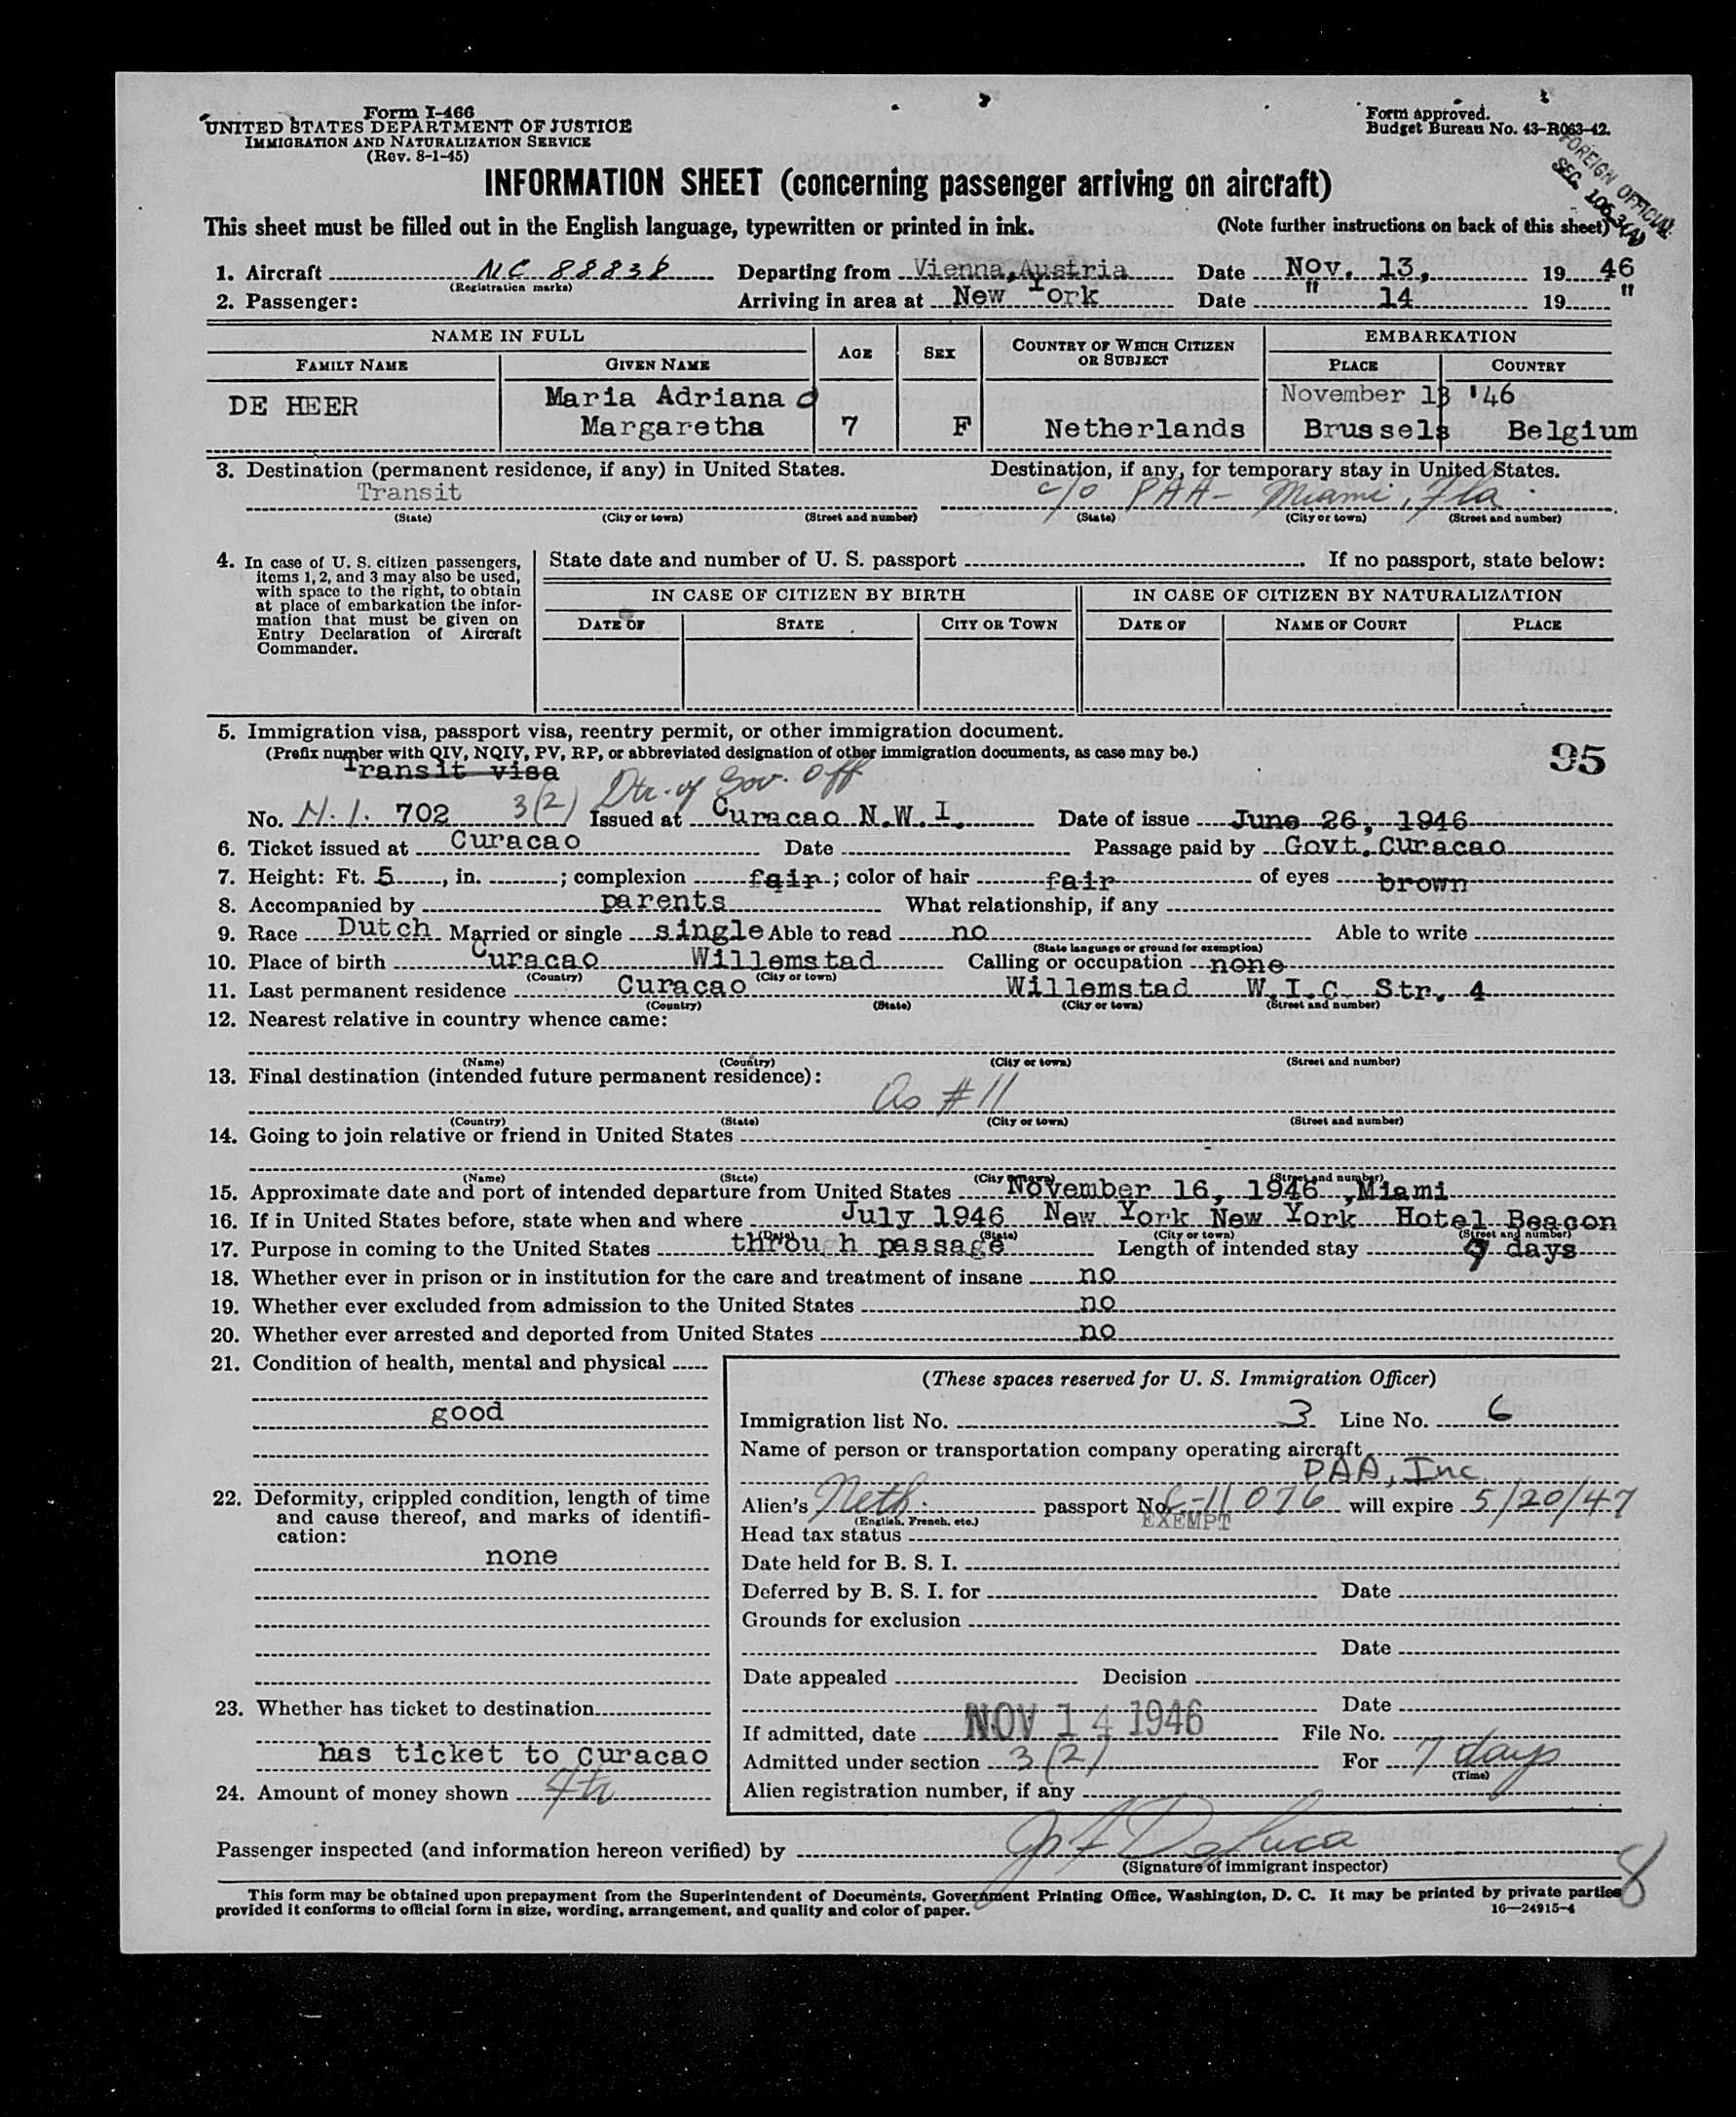 Form I-466
UNITED STATES DEPARTMENT OF JUSTICE
IMMIGRATION AND NATURALIZATION SERVICE
(Rev. 8-1-45)
Form approved.
Budget Bureau No. 43-R063-42.
FOREIGN OFFICIAL
SEC.
INFORMATION SHEET (concerning passenger arriving on aircraft)
This sheet must be filled out in the English language, typewritten or printed in ink. (Note further instructions on back of this sheet)
1. Aircraft NC 88838 Departing from Vienna, Austria Date Nov. 13, 19 46
(Registration marks)
2. Passenger: Arriving in area at New York Date " 14 19 "
NAME IN FULL AGE SEX COUNTRY OF WHICH CITIZEN OR SUBJECT EMBARKATION
FAMILY NAME GIVEN NAME PLACE COUNTRY
DE HEER Maria Adriana November 13 '46
Margaretha 7 F Netherlands Brussels Belgium
3. Destination (permanent residence, if any) in United States. Destination, if any, for temporary stay in United States.
Transit c/o PAA - Miami, Fla.
(State) (City or town) (Street and number) (State) (City or town) (Street and number)
4. In case of U. S. citizen passengers, items 1, 2, and 3 may also be used, with space to the right, to obtain at place of embarkation the information that must be given on Entry Declaration of Aircraft Commander.
State date and number of U. S. passport If no passport, state below:
IN CASE OF CITIZEN BY BIRTH IN CASE OF CITIZEN BY NATURALIZATION
DATE OF STATE CITY OR TOWN DATE OF NAME OF COURT PLACE
5. Immigration visa, passport visa, reentry permit, or other immigration document.
(Prefix number with QIV, NQIV, PV, RP, or abbreviated designation of other immigration documents, as case may be.)
95
Transit visa Dtr. of Gov. Off
No. N.I. 702 3(2) Issued at Curacao N.W.I. Date of issue June 26, 1946
6. Ticket issued at Curacao Date Passage paid by Govt. Curacao
7. Height: Ft. 5, in. ; complexion fair; color of hair fair of eyes brown
8. Accompanied by parents What relationship, if any
9. Race Dutch Married or single single Able to read no Able to write
(State language or ground for exemption)
10. Place of birth Curacao Willemstad Calling or occupation none
(Country) (City or town)
11. Last permanent residence Curacao Willemstad W.I.C. Str. 4
(Country) (State) (City or town) (Street and number)
12. Nearest relative in country whence came:
(Name) (Country) (City or town) (Street and number)
13. Final destination (intended future permanent residence):
As # 11
(Country) (State) (City or town) (Street and number)
14. Going to join relative or friend in United States
(Name) (State) (City or town) (Street and number)
15. Approximate date and port of intended departure from United States November 16, 1946, Miami
16. If in United States before, state when and where July 1946 New York New York Hotel Beacon
(Date) (State) (City or town) (Street and number)
17. Purpose in coming to the United States throu h passage Length of intended stay 7 days
18. Whether ever in prison or in institution for the care and treatment of insane no
19. Whether ever excluded from admission to the United States no
20. Whether ever arrested and deported from United States no
21. Condition of health, mental and physical
good
22. Deformity, crippled condition, length of time and cause thereof, and marks of identification:
none
23. Whether has ticket to destination
has ticket to Curacao
24. Amount of money shown
(These spaces reserved for U. S. Immigration Officer)
Immigration list No. 3 Line No. 6
Name of person or transportation company operating aircraft
PAA, Inc.
Alien's Neth. passport No. C-11076 will expire 5/20/47
(English, French, etc.)
Head tax status EXEMPT
Date held for B. S. I.
Deferred by B. S. I. for Date
Grounds for exclusion
Date
Date appealed Decision
Date
If admitted, date NOV 14 1946 File No.
Admitted under section 3(2) For 7 days
(Time)
Alien registration number, if any
Passenger inspected (and information hereon verified) by DeLuca
(Signature of immigrant inspector)
8
This form may be obtained upon prepayment from the Superintendent of Documents, Government Printing Office, Washington, D. C. It may be printed by private parties
provided it conforms to official form in size, wording, arrangement, and quality and color of paper. 16—24915-4